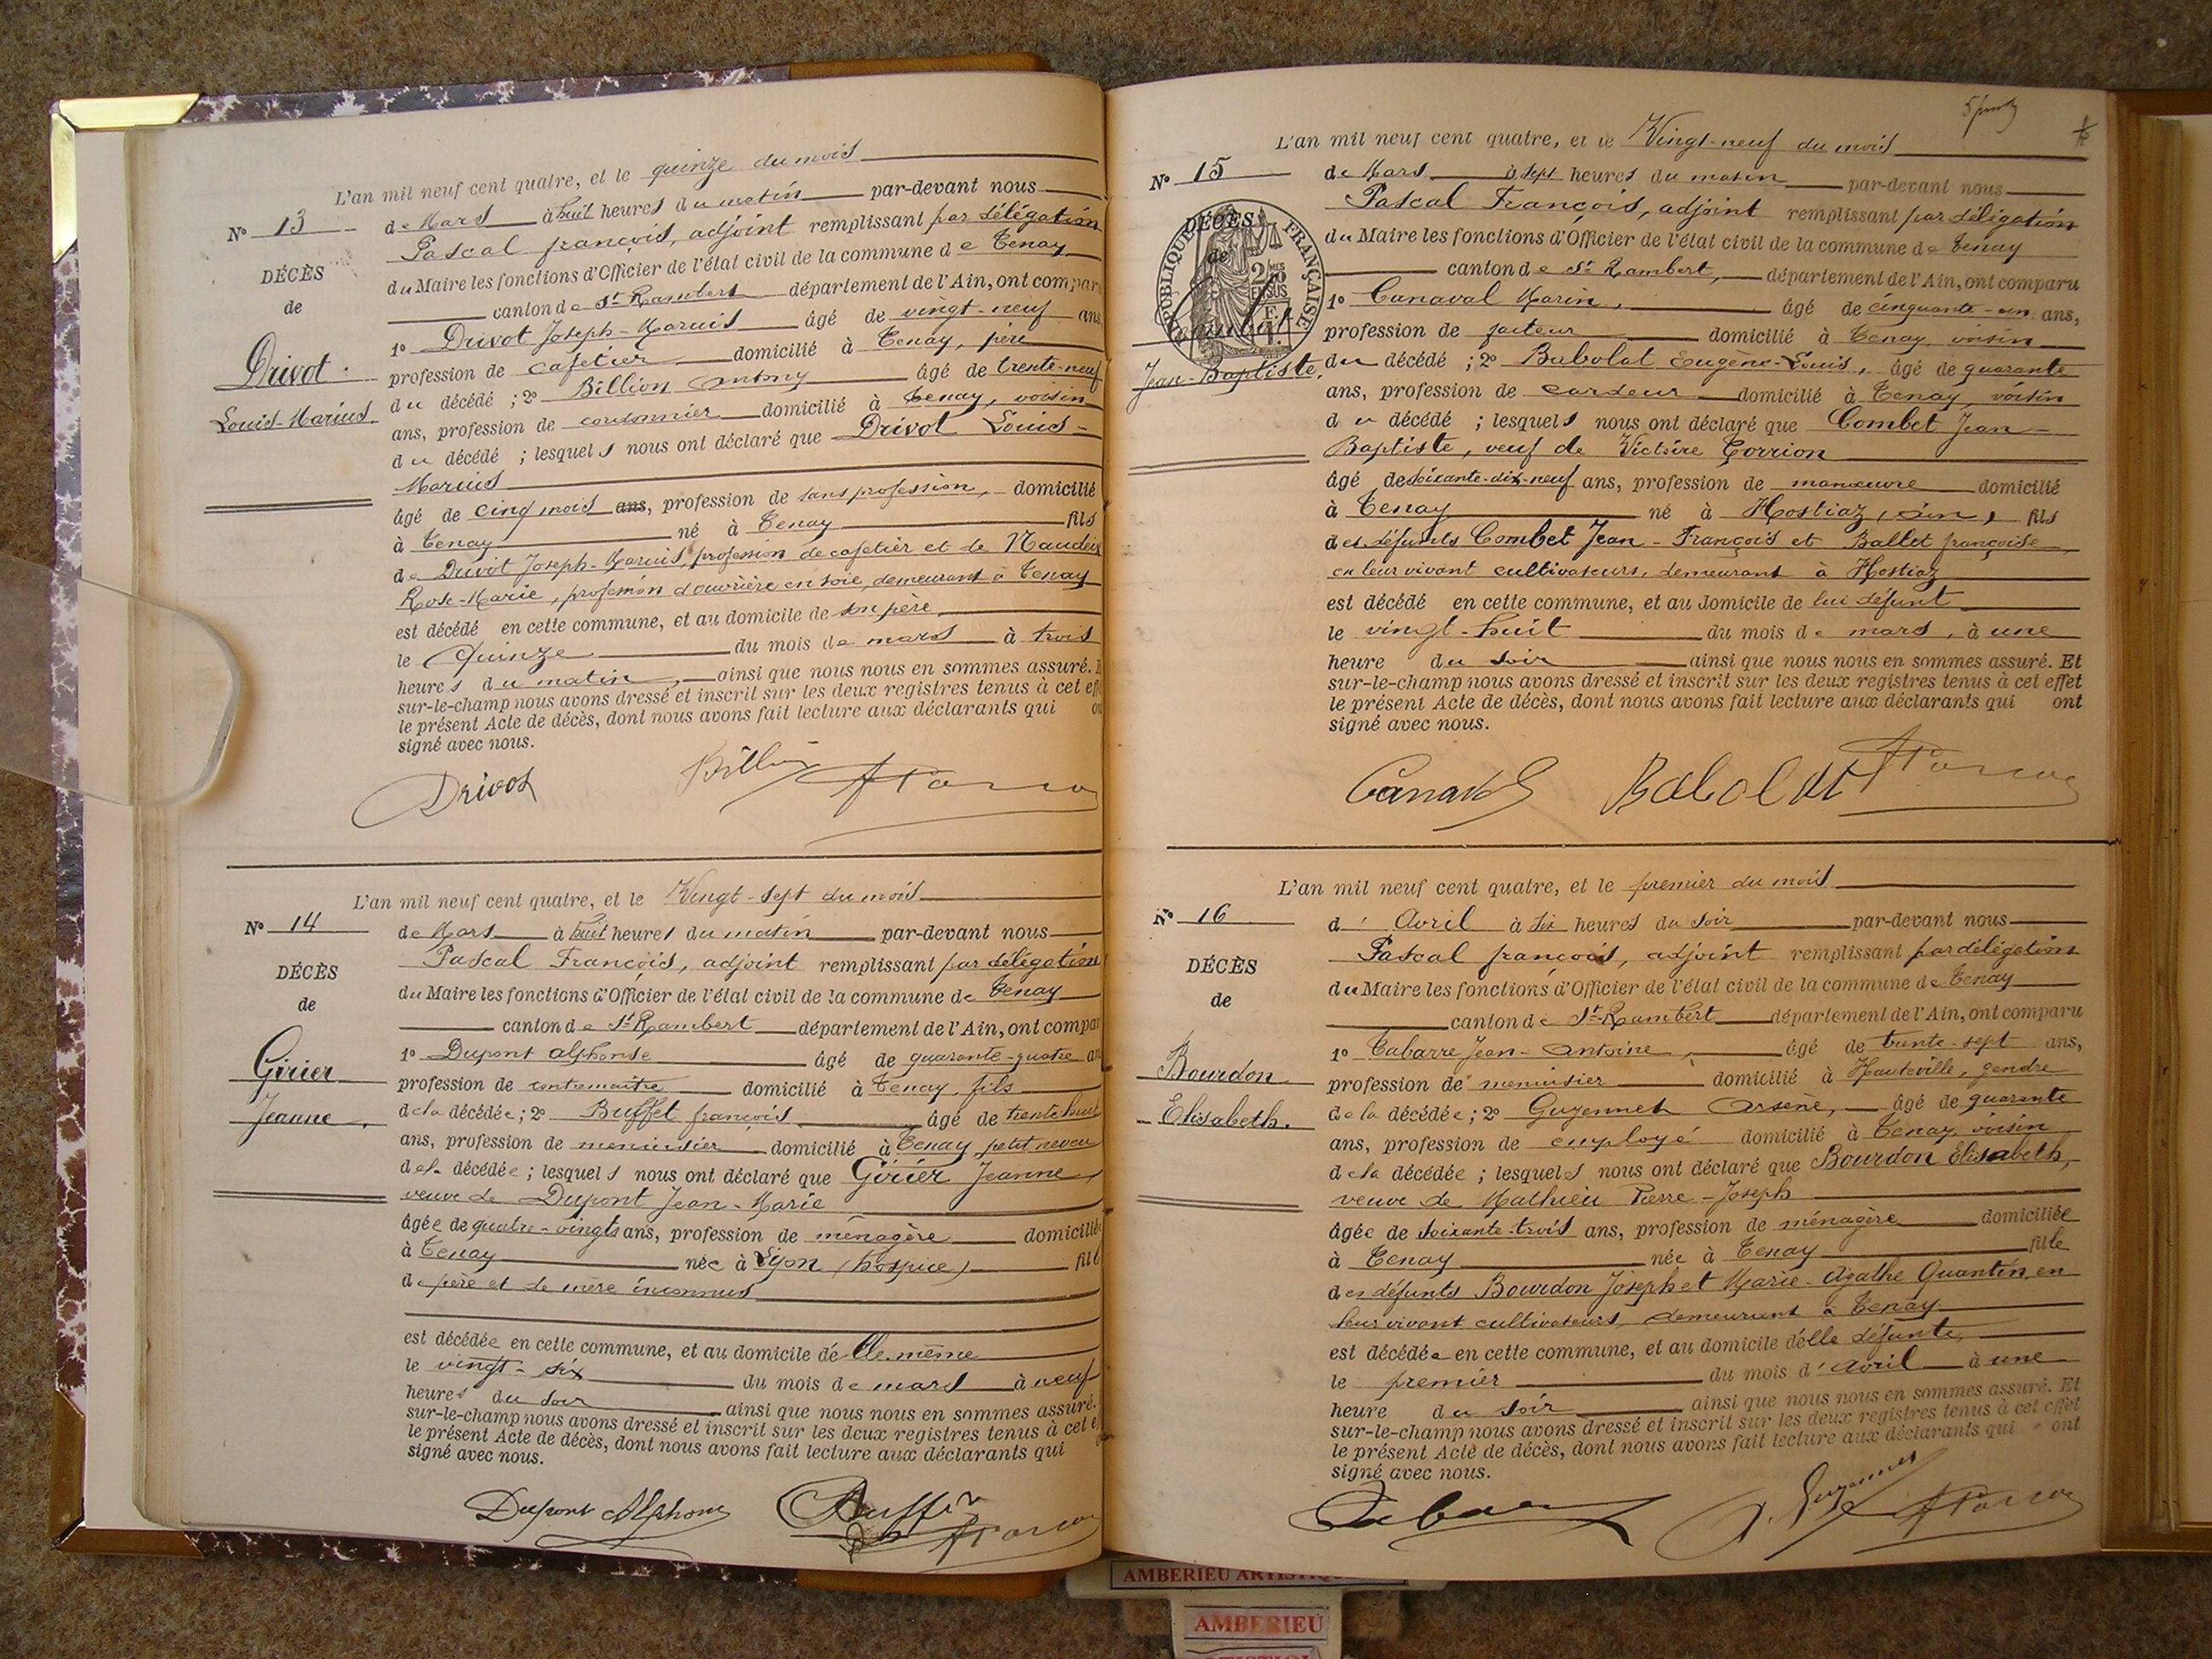 L'an mil neuf cent quatre, et le quinze du mois
Nº 13
de Mars à huit heures du matin par-devant nous
Pascal françois, adjoint remplissant par délégation
du Maire les fonctions d'Officier de l'état civil de la commune de Tenay
DÉCÈS
de
Drivot
Louis-Marius
canton de St Rambert département de l'Ain, ont compar
1º Drivot Joseph-Marius âgé de vingt-neuf ans
profession de cafetier domicilié à Tenay, père
du décédé ; 2º Billion Antony âgé de trente-neuf
ans, profession de cordonnier domicilié à Tenay, voisin
du décédé ; lesquels nous ont déclaré que Drivot Louis-
Marius
âgé de cinq mois ans, profession de sans profession, domicilié
à Tenay né à Tenay fils
de Drivot Joseph-Marius, profession de cafetier et de Naudeix
Rose-Marie, profession d'ouvrière en soie, demeurant à Tenay
est décédé en cette commune, et au domicile de son père,
le quinze du mois de mars à trois
heures du matin, ainsi que nous nous en sommes assuré.
sur-le-champ nous avons dressé et inscrit sur les deux registres tenus à cet eff
le présent Acte de décès, dont nous avons fait lecture aux déclarants qui
signé avec nous.
Drivot Billion
L'an mil neuf cent quatre, et le Vingt-sept du mois
Nº 14
de Mars à huit heures du matin par-devant nous
Pascal François, adjoint remplissant par délégation
du Maire les fonctions d'Officier de l'état civil de la commune de Tenay
DÉCÈS
de
Girier
Jeanne,
canton de St-Rambert département de l'Ain, ont compar
1º Dupont alphonse âgé de quarante-quatre an
profession de contremaître domicilié à Tenay, fils
de la décédée ; 2º Buffet françois âgé de trente huit
ans, profession de menuisier domicilié à Tenay, petit neveu
de la décédée ; lesquels nous ont déclaré que Girier Jeanne,
veuve de Dupont Jean-Marie
âgée de quatre-vingts ans, profession de ménagère domiciliée
à Tenay née à Lyon (hospice) fille
de père et de mère inconnus
est décédée en cette commune, et au domicile de Elle même
le vingt-six du mois de mars à neuf
heures du soir ainsi que nous nous en sommes assuré.
sur-le-champ nous avons dressé et inscrit sur les deux registres tenus à cet e
le présent Acte de décès, dont nous avons fait lecture aux déclarants qui
signé avec nous.
Dupont Alphonse
L'an mil neuf cent quatre, et le Vingt-neuf du mois
Nº 15
de Mars à sept heures du matin par-devant nous
Pascal François, adjoint remplissant par délégation
du Maire les fonctions d'Officier de l'état civil de la commune de Tenay
DÉCÈS
de
RÉPUBLIQUE FRANÇAISE
Combet
Jean-Baptiste,
canton de St Rambert, département de l'Ain, ont comparu
1º Canaval Marin, âgé de cinquante-un ans,
profession de facteur domicilié à Tenay, voisin
du décédé ; 2º Babolat Eugène-Louis, âgé de quarante
ans, profession de cardeur domicilié à Tenay, voisin
du décédé ; lesquels nous ont déclaré que Combet Jean-
Baptiste, veuf de Victoire Gorrion
âgé de soixante-dix-neuf ans, profession de manœuvre domicilié
à Tenay né à Hostiaz, (ain), fils
des défunts Combet Jean-François et Ballet françoise,
en leur vivant cultivateurs, demeurant à Hostiaz
est décédé en cette commune, et au domicile de lui défunt
le vingt-huit du mois de mars, à une
heure du soir ainsi que nous nous en sommes assuré. Et
sur-le-champ nous avons dressé et inscrit sur les deux registres tenus à cet effet
le présent Acte de décès, dont nous avons fait lecture aux déclarants qui ont
signé avec nous.
Canaval Babolat
L'an mil neuf cent quatre, et le premier du mois
Nº 16
d' Avril à six heures du soir par-devant nous
Pascal françois, adjoint remplissant par délégation
du Maire les fonctions d'Officier de l'état civil de la commune de Tenay
DÉCÈS
de
Bourdon
Elisabeth.
canton de St-Rambert département de l'Ain, ont comparu
1º Tabarre Jean-Antoine, âgé de trente-sept ans,
profession de menuisier domicilié à Hauteville, gendre
de la décédée ; 2º Guyennet Arsène, âgé de quarante
ans, profession de employé domicilié à Tenay, voisin
de la décédée ; lesquels nous ont déclaré que Bourdon Élisabeth,
veuve de Mathieu Pierre-Joseph
âgée de soixante-trois ans, profession de ménagère domiciliée
à Tenay née à Tenay fille
des défunts Bourdon Joseph et Marie-Agathe Quantin, en
leur vivant cultivateurs, demeurant à Tenay
est décédée en cette commune, et au domicile d'elle défunte,
le premier du mois d'avril à une
heure du soir ainsi que nous nous en sommes assuré. Et
sur-le-champ nous avons dressé et inscrit sur les deux registres tenus à cet effet
le présent Acte de décès, dont nous avons fait lecture aux déclarants qui ont
signé avec nous.
Guyennet
AMBERIEU
AMBERIEU